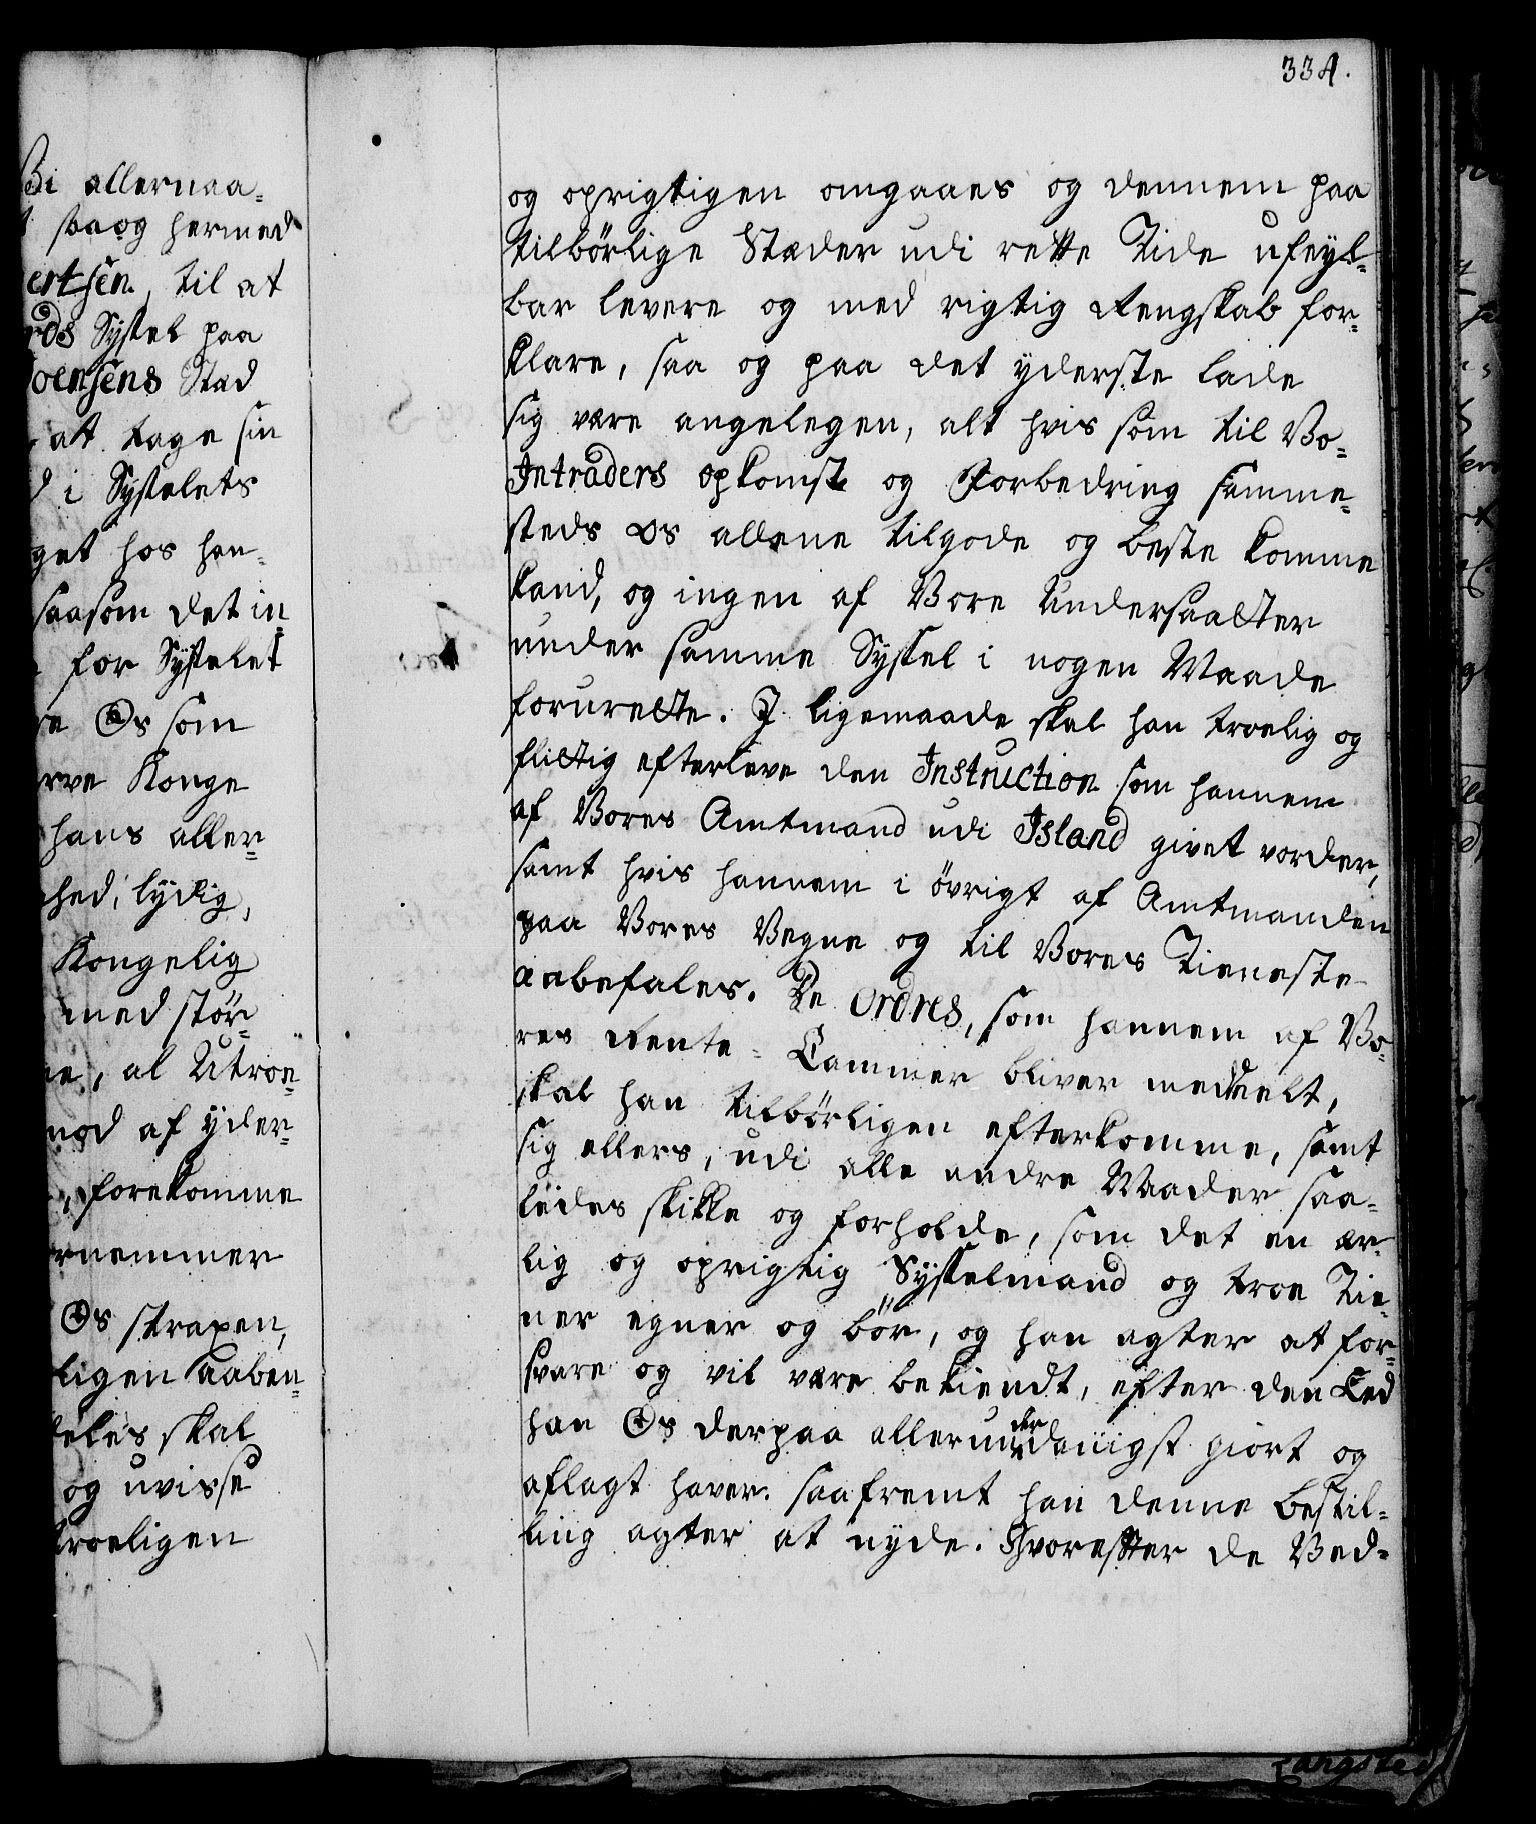 Vi allernaa-
saa og hermed
ertsen, til at
rds Syssel paa
Joensens Stæd
at tage sin
i Sysselets
get hos han-
saasom det in-
for Sysselet
re Os som
Arve Konge
hans aller-
hed, lydig,
Kongelig
med stör-
ne, al Utroe-
mod af yder-
, forekomme
ornemmer
Os straxen,
ligen aaben-
deles skal
og uvisse
troeligen
334.
og oprigtigen omgaaes og dennem paa
tilbörlige Stæder udi rette Tide ufeyl-
bar levere og med rigtig Rengskab for-
klare, saa og paa det yderste lade
sig være angelegen, alt hvis som til Vo-
Intraders opkomst og Forbedring samme-
steds Os allene tilgode og beste komme
kand, og ingen af Vore Undersaatter
under samme Syssel i nogen Maade
forurette. I ligemaade skal han troelig og
flittig efterleve den Instruction som hannem
af Vores Amtmand udi Island givet vorder,
samt hvis hannem i övrigt af Amtmanden
paa Vores Vegne og til Vores Tieneste
anbefales. De Ordres, som hannem af Vo-
res Rente-Cammer bliver meddeelt,
skal han tilbörligen efterkomme, samt
sig ellers, udi alle andre Maader saa-
ledes skikke og forholde, som det en ær-
lig og oprigtig Sysselmand og troe Tie-
ner egner og bör, og han agter at for-
svare og vil være bekiendt, efter den Eed
han Os derpaa allerunderdanigst giort og
aflagt haver. saafremt han denne bestil-
ling agter at nyde. Hvorefter de Ved-